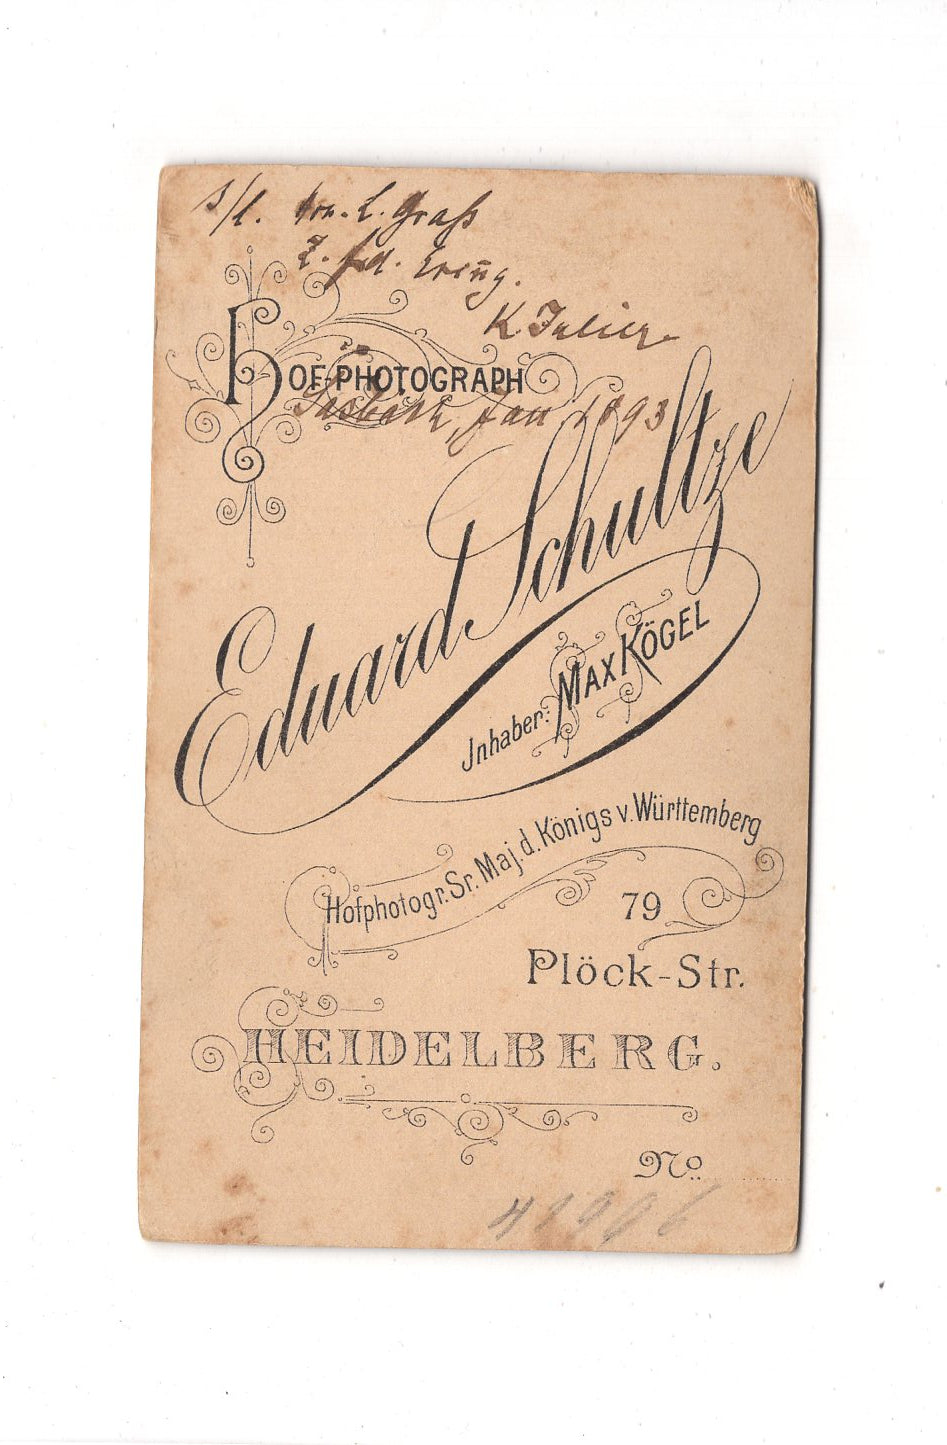 s/l. L. Graß
z. frd. Ering.
K Julier
HOF-PHOTOGRAPH
Sasbach, Jan 1893
Eduard Schultze
Jnhaber: MAX KÖGEL
Hofphotogr. Sr. Maj. d. Königs v. Württemberg
79
Plöck-Str.
HEIDELBERG.
No